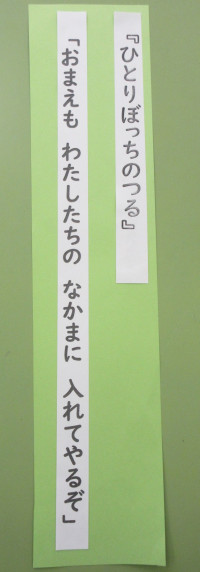 『ひとりぼっちのつる』
「おまえも わたしたちの なかまに 入れてやるぞ」